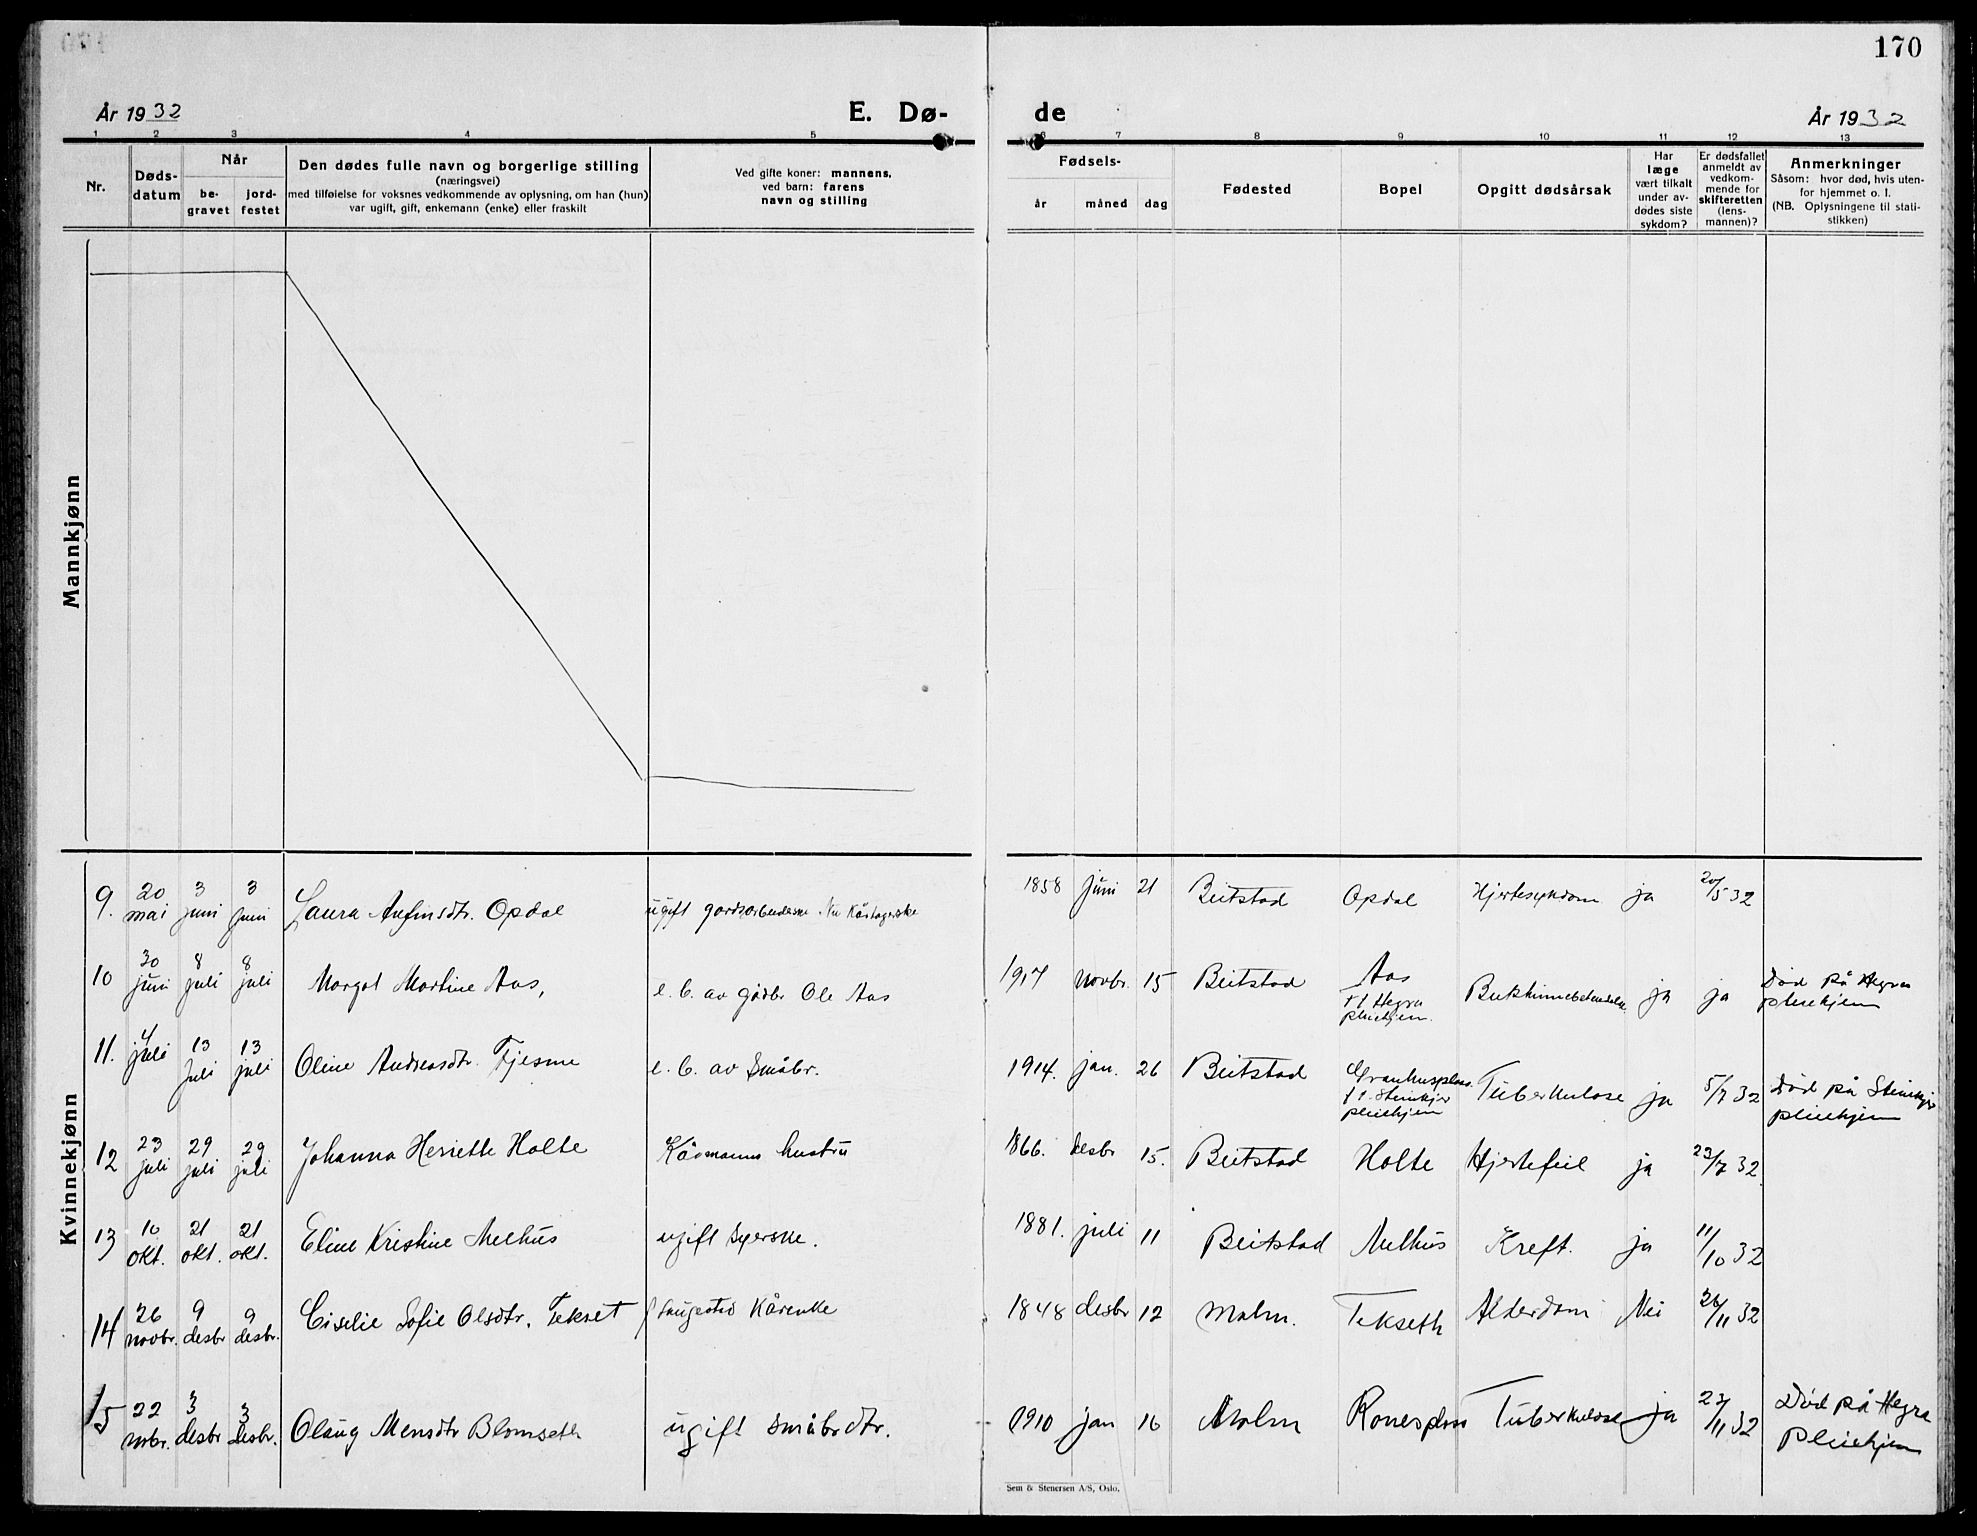 170
År 1932
E. Dø- de
År 1932
1 2 3 4 5 6 7 8 9 10 11 12 13
Nr.
Døds-
datum
Når
be-
gravet
jord-
festet
Den dødes fulle navn og borgerlige stilling
(næringsvei)
med tilføielse for voksnes vedkommende av oplysning, om han (hun)
var ugift, gift, enkemann (enke) eller fraskilt
Ved gifte koner: mannens,
ved barn: farens
navn og stilling
Fødsels-
år måned dag
Fødested
Bopel
Opgitt dødsårsak
Har
læge
vært tilkalt
under av-
dødes siste
sykdom?
Er dødsfallet
anmeldt av
vedkom-
mende for
skifteretten
(lens-
mannen)?
Anmerkninger
Såsom: hvor død, hvis uten-
for hjemmet o. l.
(NB. Oplysningene til stati-
stikken)
Mannkjønn
Kvinnekjønn
9. 20 mai 3 juni 3 juni Laura Arfinsdtr. Opdal ugift 1858 juni 21 Beitstad Opdal Hjertesykdom ja 20/5 32
10 30 juni 8 juli 8 juli Margot Martine Aas, e. b. av gårdbr Ole Aas 1917 novbr. 15 Beitstad Aas
f. t. Hegra
pleiehjem. Bukhinnebetendelse ja ja Død på Hegra
pleiehjem
11. 4 juli 13 juli 13 juli Oline Andreasdtr. Fjesme e. b. av Småbr. 1914. jan. 26 Beitstad Granhusplass.
f. t. Steinkjer
pleiehjem Tuberkulose ja 5/7 32 Død på Steinkjer
pleiehjem
12 23 juli 29 juli 29 juli Johanna Heriette Holte Kårmanns hustru 1866. desbr 15. Beitstad Holte Hjertefeil ja 23/7 32
13 10 okt. 21 okt. 21 okt. Eline Kristine Melhus ugift syerske. 1881. juli 11 Beitstad Melhus Kreft. ja 11/10 32
14 26 novbr. 9 desbr 9 desbr. Ciselie Sofie Olsdtr. Tekset Kårenke 1848 desbr 12 Malm. Tekseth Alderdom Nei 26/11 32
15 22 nvbr. 3 desbr 3 desbr. Olaug Mensdtr Blomseth ugift småbrdtr. 1910 jan 16 Malm Ronesplass Tuberkulose ja 23/11 32 Død på Hegra
pleiehjem
Sem & Stenersen A/S, Oslo.